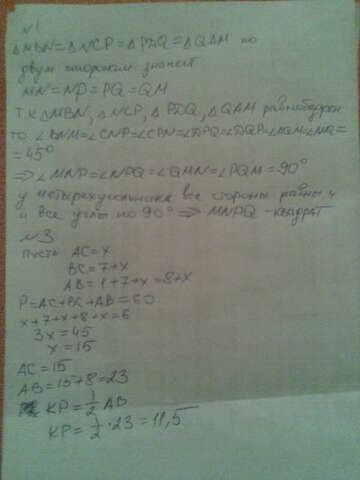 N1
ΔMBN=ΔNCP=ΔPDQ=ΔQAM по
двум сторонам значит
MN=NP=PQ=QM
т.к ΔMBN, ΔNCP, ΔPDQ, ΔQAM равнобедрен
то ∠BNM=∠CNP=∠CPN=∠DPQ=∠DQP=∠AQM=∠MQ=
=45°
⇒∠MNP=∠NPQ=∠QMN=∠PQM=90°
у четырехугольника все стороны равны и
и все углы по 90° ⇒ MNPQ-квадрат
N3
пусть AC=x
BC=7+x
AB=1+7+x=8+x
P=AC+BC+AB=60
x+7+x+8+x=6
3x=45
x=15
AC=15
AB=15+8=23
KP=1/2 AB
KP=1/2·23=11,5